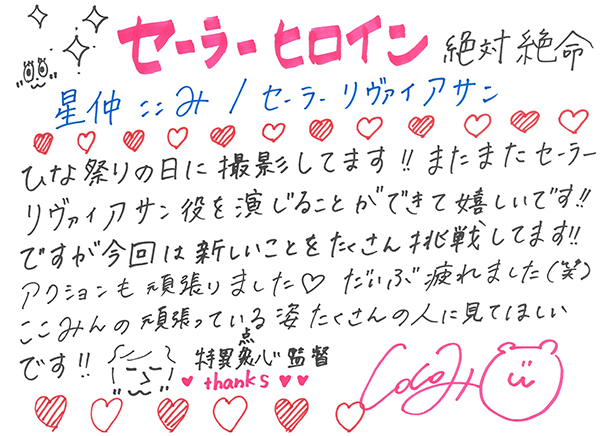 セーラーヒロイン 絶対絶命
星仲ここみ / セーラーリヴァイアサン
ひな祭りの日に撮影してます!! またまたセーラー
リヴァイアサン役を演じることができて嬉しいです!!
ですが今回は新しいことをたくさん挑戦してます!!
アクションも頑張りました♡ だいぶ疲れました(笑)
ここみんの頑張っている姿たくさんの人に見てほしい
です!!
特異点 監督
♥ thanks ♥♥